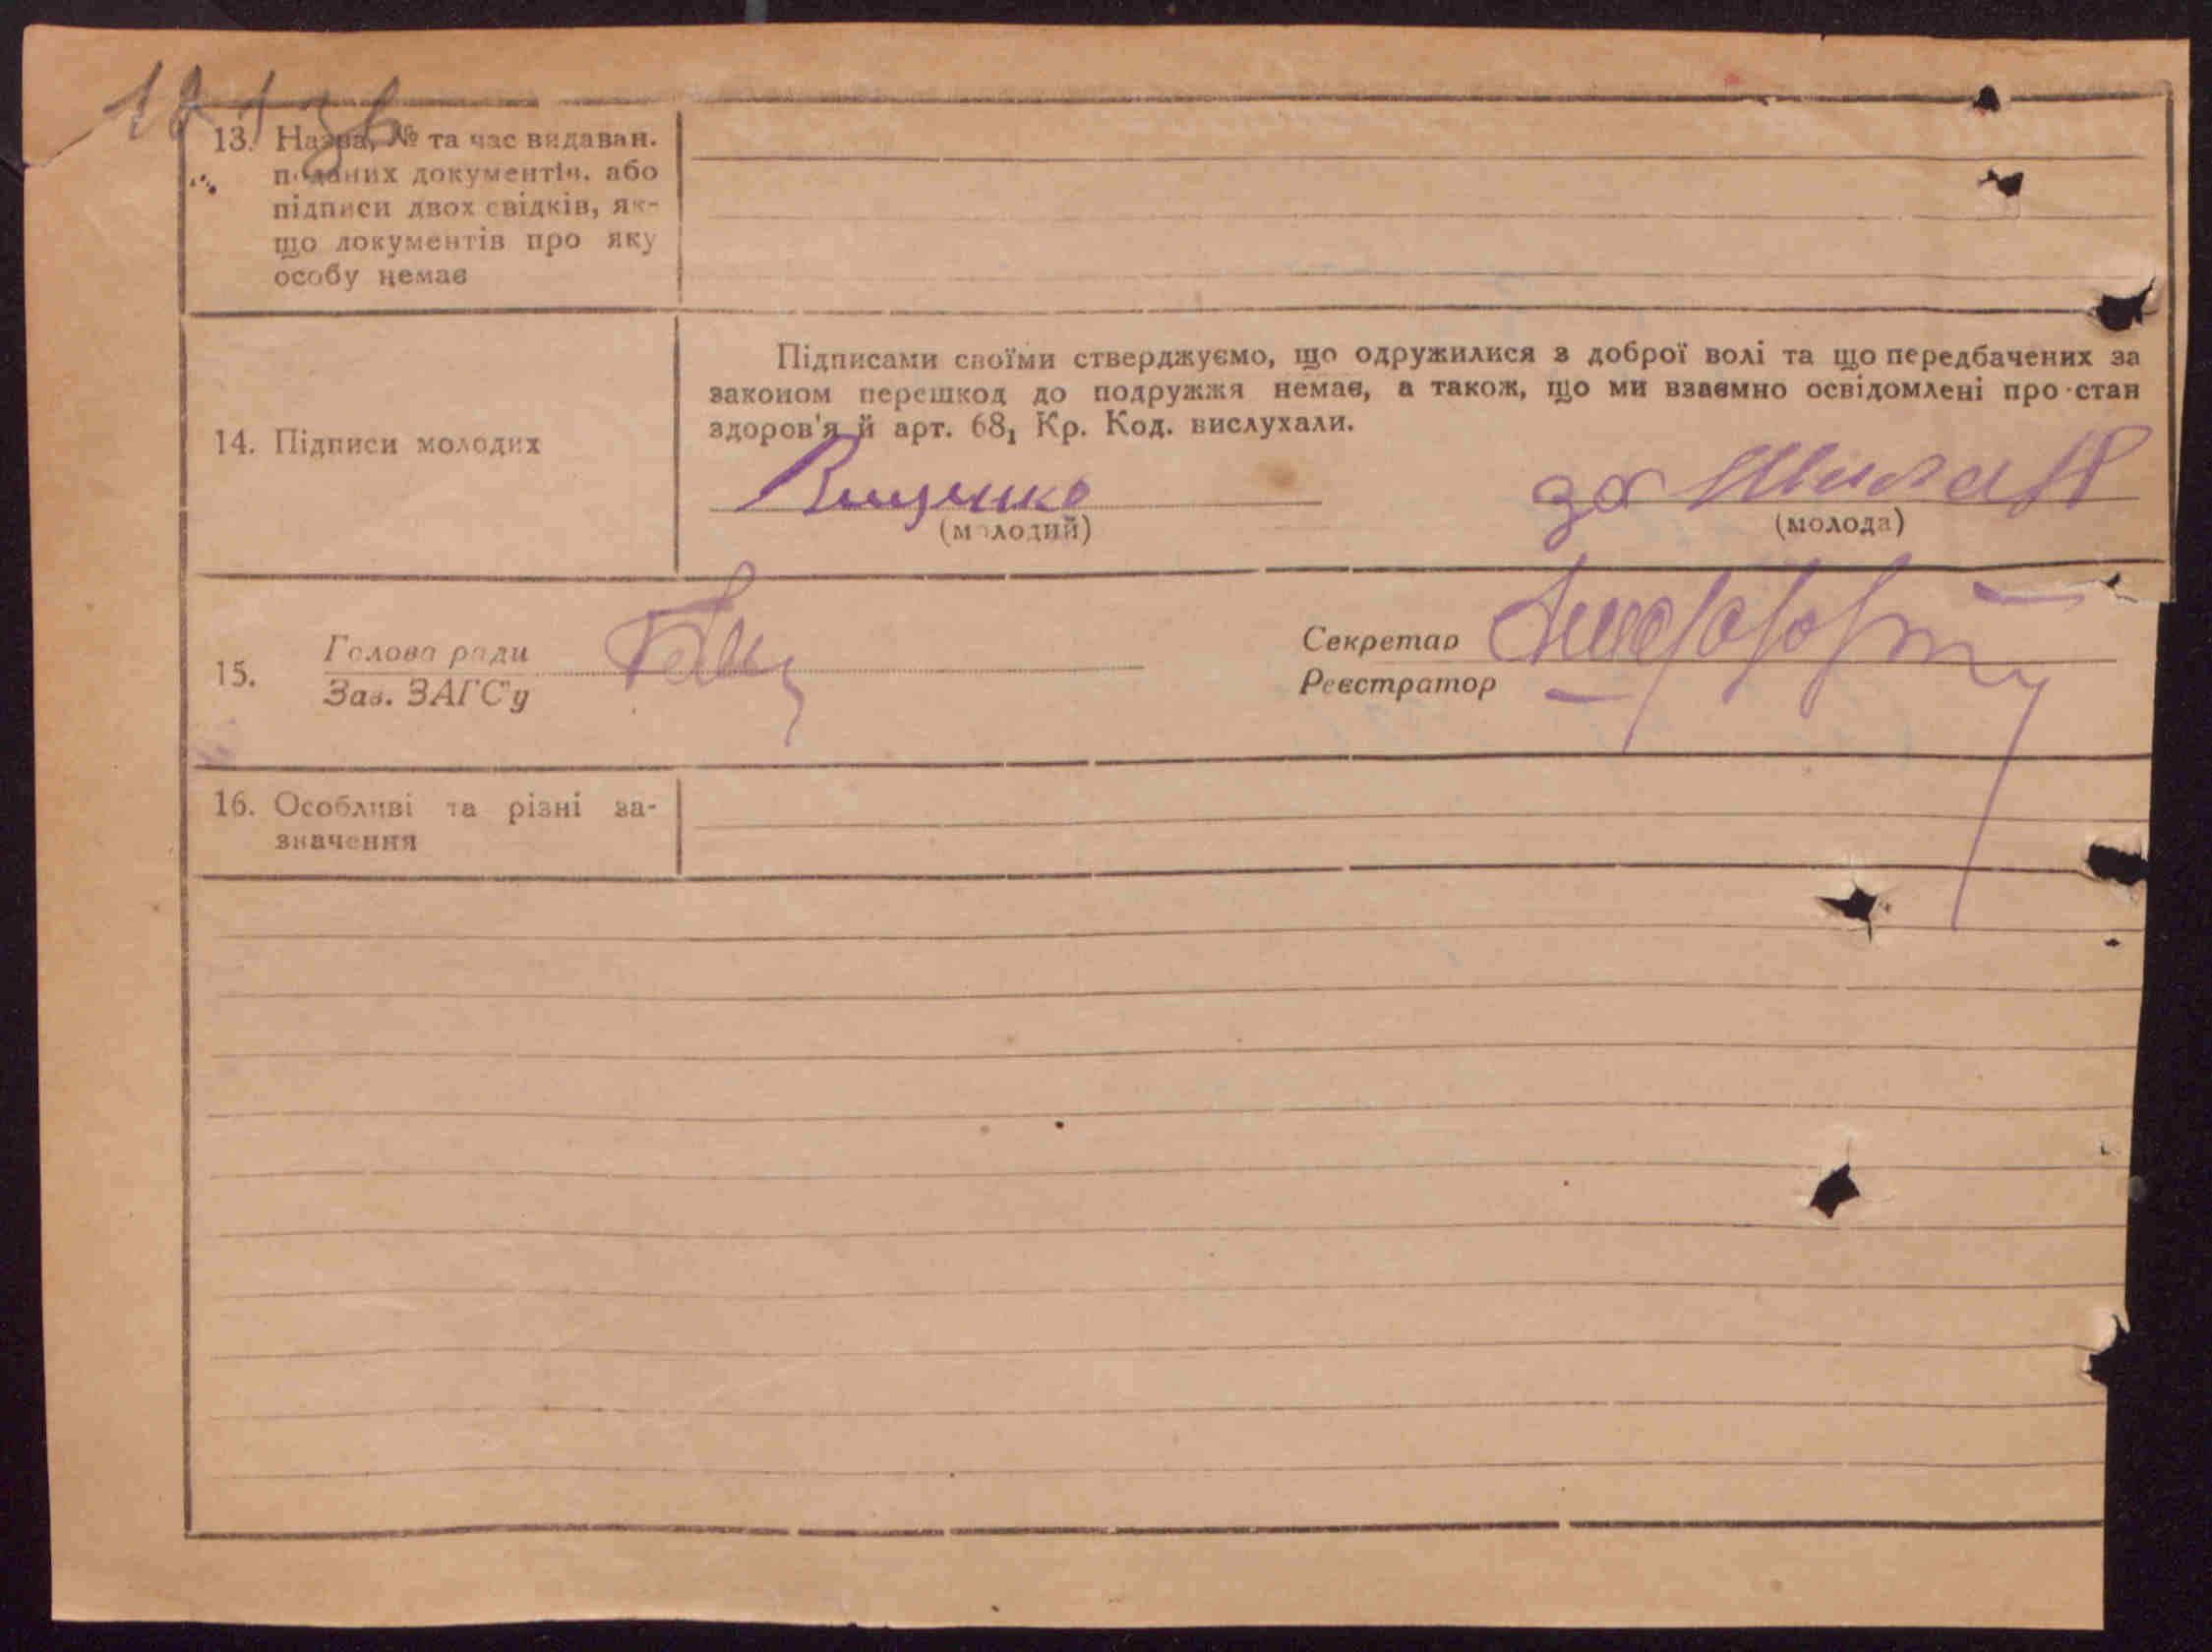 13. Назва, № та час видаван.
поданих документів, або
підписи двох свідків, як-
що документів про яку
особу немає
Підписами своїми стверджуємо, що одружилися з доброї волі та що передбачених за
законом перешкод до подружжя немає, а також, що ми взаємно освідомлені про стан
здоров'я й арт. 68₁ Кр. Код. вислухали.
14. Підписи молодих
за
(молодий) (молода)
15. Голова ради
Зав. ЗАГС'у
Секретар
Реєстратор
16. Особливі та різні за-
значення